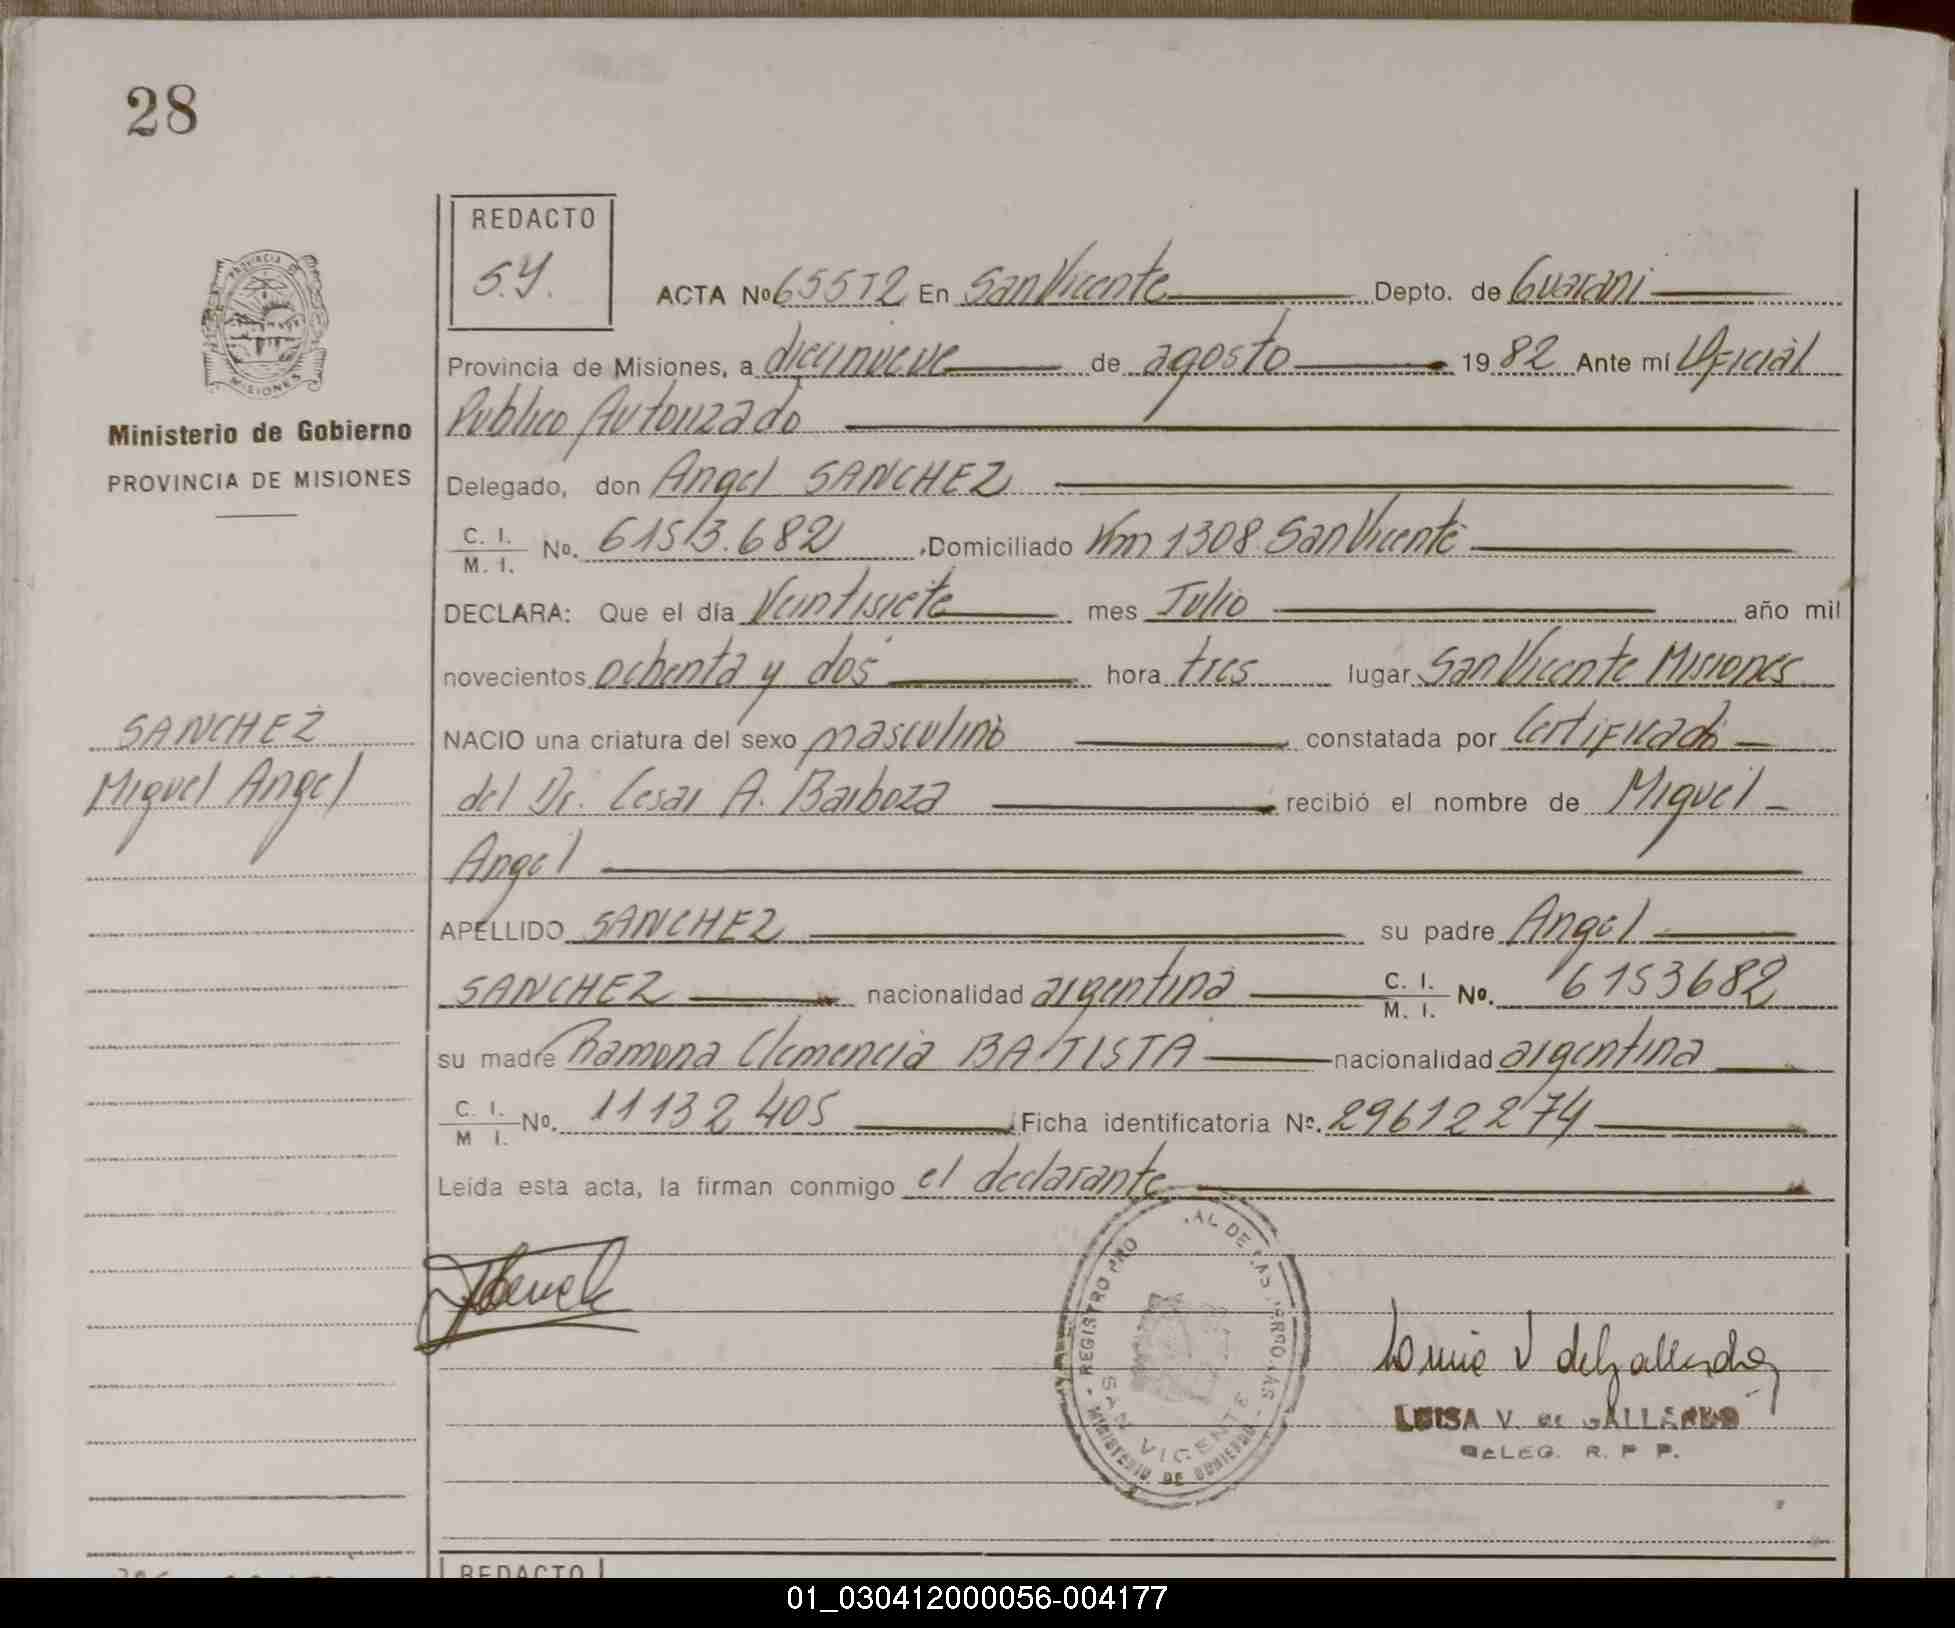 28
REDACTO
S.Y.
ACTA Nº 65512 En San Vicente Depto. de Guarani
Provincia de Misiones, a diecinueve de agosto 1982 Ante mí Oficial
Publico Autorizado
Delegado, don Angel SANCHEZ
C. I. M. I. No. 6153.682 , Domiciliado Km 1308 San Vicente
DECLARA: Que el día Veintisiete mes Julio año mil
novecientos ochenta y dos hora tres lugar San Vicente Misiones
NACIO una criatura del sexo masculino constatada por Certificado
del Dr. Cesar A. Barboza recibió el nombre de Miguel
Angel
APELLIDO SANCHEZ su padre Angel
SANCHEZ nacionalidad argentina C. I. M. I. No. 6153682
su madre Ramona Clemencia BATISTA nacionalidad argentina
C. I. M I. No. 11132405 Ficha identificatoria Nº. 29612274
Leída esta acta, la firman conmigo el declarante
PROVINCIA DE
MISIONES
Ministerio de Gobierno
PROVINCIA DE MISIONES
SANCHEZ
Miguel Angel
REGISTRO PRO AL DE LAS PERSONAS
SAN VICENTE
MINISTERIO DE GOBIERNO
Luisa V de Gallardo
LUISA V. DE GALLARDO
DELEG. R. P P.
REDACTO
01_030412000056-004177